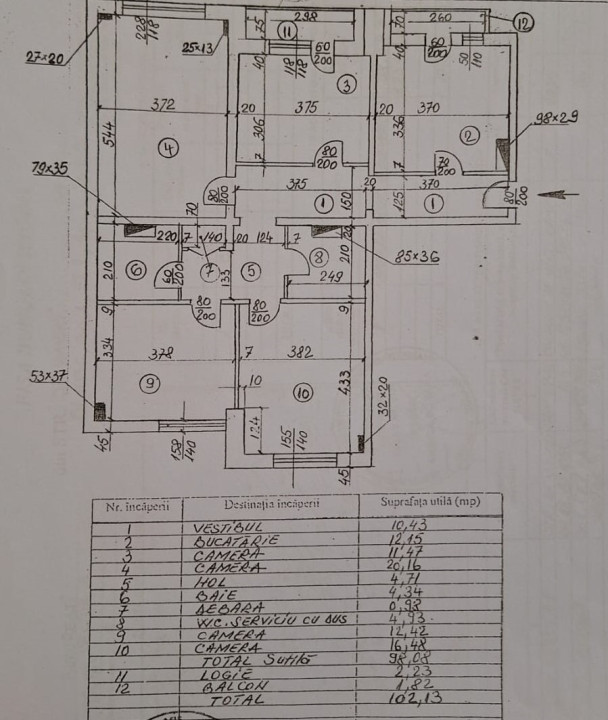 228
118
25×13
27×20
75
298
11
60
200
40
118
118
70
260
12
40
60
200
50
110
3
372
20
375
20
370
98×29
544
306
336
2
4
79×35
7
80
200
7
70
200
80
200
375
150
20
370
80
200
70
1
125
1
220
7
140
20
124
7
20
85×36
6
60
200
7
133
5
8
210
210
249
9
80
200
80
200
9
334
378
7
382
433
53×37
9
10
10
32×20
124
45
158
140
155
140
45
Nr. încăperii Destinația încăperii Suprafața utilă (mp)
1 VESTIBUL 10,43
2 BUCATĂRIE 12,15
3 CAMERA 11,47
4 CAMERA 20,16
5 HOL 4,71
6 BAIE 4,34
7 DEBARA 0,98
8 WC. SERVICIU CU DUS 4,93
9 CAMERA 12,42
10 CAMERA 16,48
TOTAL Sutilă 98,08
11 LOGIE 2,23
12 BALCON 1,82
TOTAL 102,13